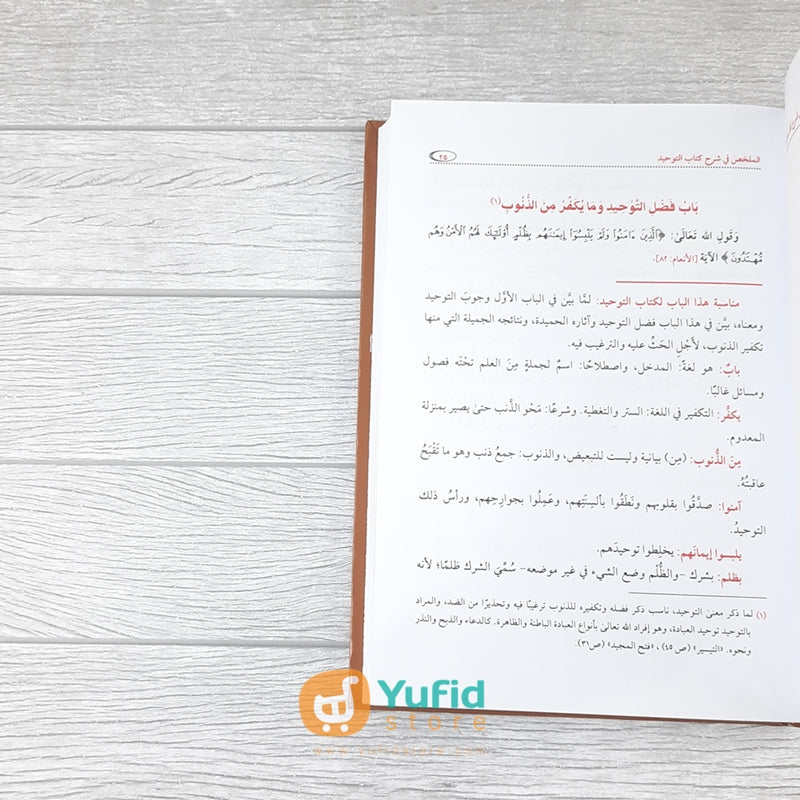 الملخص في شرح كتاب التوحيد ٢٥
بَابُ فَضْلِ التَّوْحِيدِ وَمَا يُكَفِّرُ مِنَ الذُّنُوبِ(١)
وَقَولِ الله تَعَالَىٰ: ﴿ٱلَّذِينَ ءَامَنُوا۟ وَلَمْ يَلْبِسُوٓا۟ إِيمَٰنَهُم بِظُلْمٍ أُو۟لَٰٓئِكَ لَهُمُ ٱلْأَمْنُ وَهُم
مُّهْتَدُونَ﴾ الآيَة [الأنعام: ٨٢].
مناسبة هذا الباب لكتاب التوحيد: لمَّا بيَّن في الباب الأوَّل وجوبَ التوحيد
ومعناه، بيَّن في هذا الباب فضل التوحيد وآثاره الحميدة، ونتائجه الجميلة التي منها
تكفير الذنوب، لأَجْلِ الحَثُّ عليه والترغيب فيه.
بابٌ: هو لغةً: المدخل، واصطلاحًا: اسمٌ لجملةٍ مِنَ العلم تحْتَه فصول
ومسائل غالبًا.
يكفِّر: التكفير في اللغة: الستر والتغطية. وشرعًا: مَحْو الذَّنب حتىٰ يصير بمنزلة
المعدوم.
مِنَ الذُّنوب: (مِن) بيانية وليست للتبعيض، والذنوب: جمعُ ذنب وهو ما تَقْبَحُ
عاقبتُهُ.
آمنوا: صدَّقُوا بقلوبهم ونَطَقُوا بألسِنَتِهم، وعَمِلُوا بجوارِحِهم، ورأسُ ذلك
التوحيدُ.
يلبسوا إيمانَهم: يخلِطوا توحيدَهم.
بظلم: بشرك -والظُّلْم وضع الشيء في غير موضعه- سُمِّيَ الشرك ظلمًا؛ لأنه
(١) لما ذكر معنىٰ التوحيد، ناسب ذكر فضله وتكفيره للذنوب ترغيبًا فيه وتحذيرًا من الضد، والمراد
بالتوحيد توحيد العبادة، وهو إفراد الله تعالىٰ بأنواع العبادة الباطنة والظاهرة. كالدعاء والذبح والنذر
ونحوه. «التيسير» (ص٤٥)، «فتح المجيد» (ص٣١).
Yufid
store